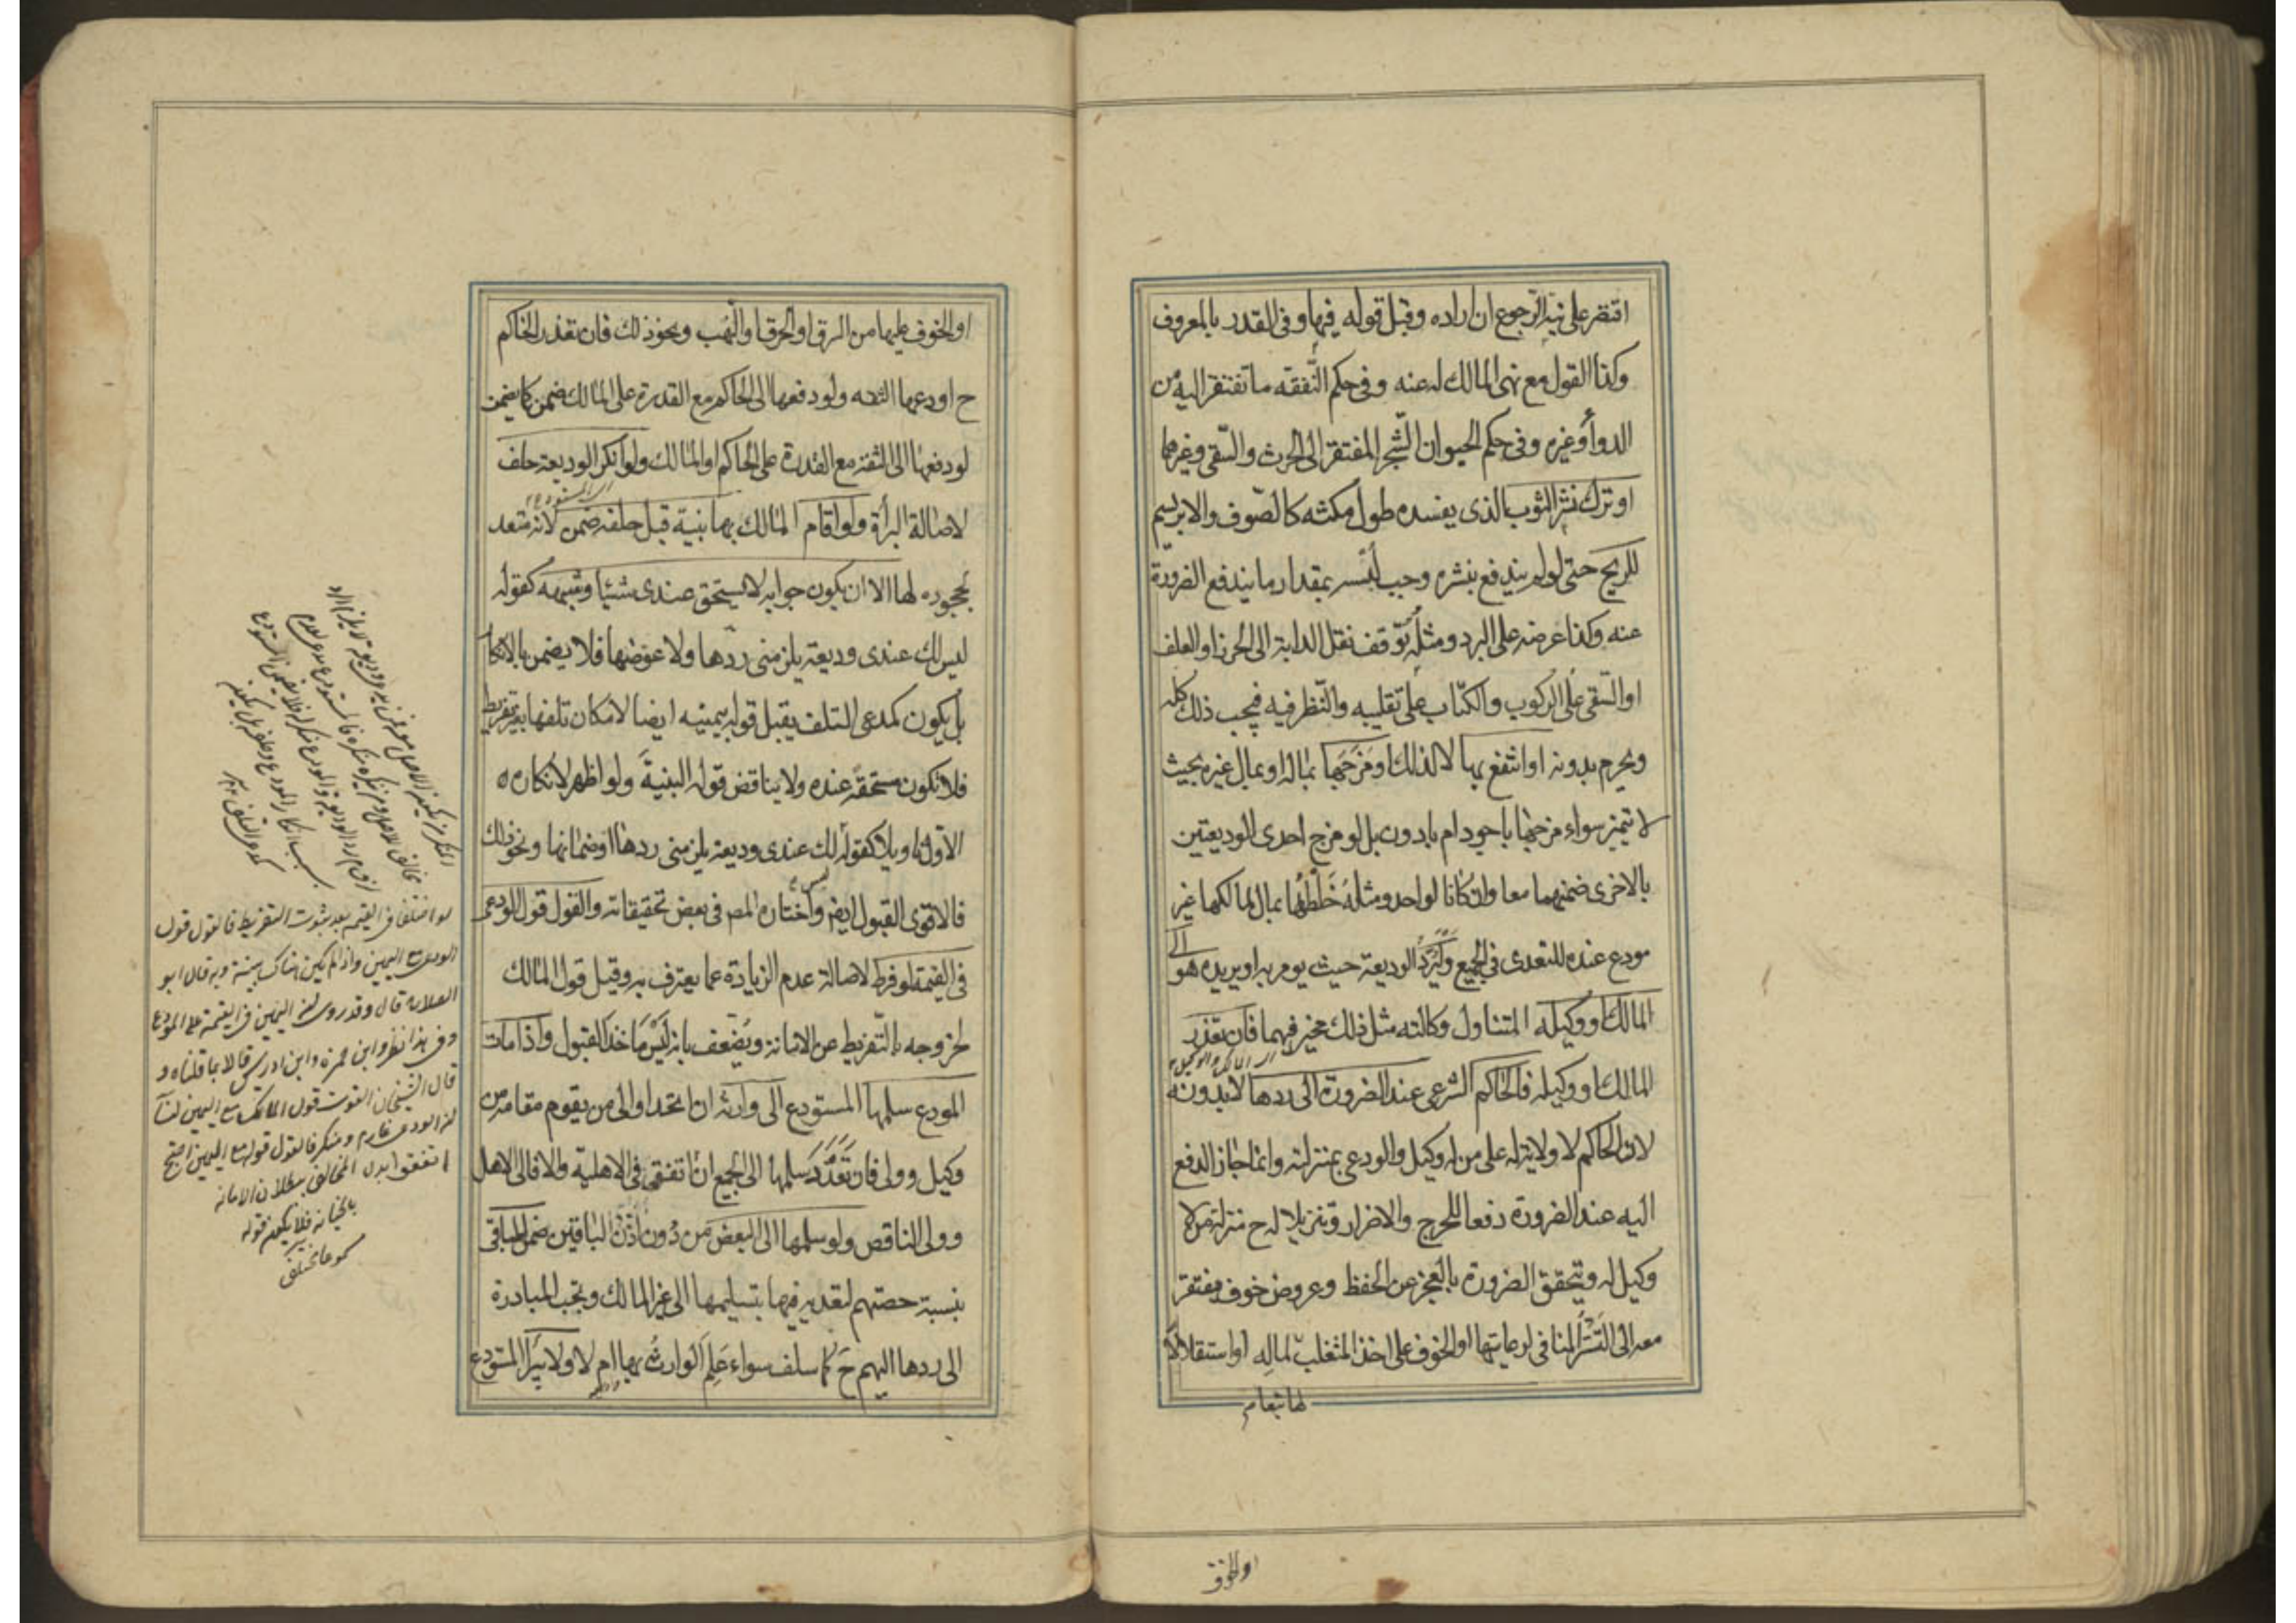 افتقر على نية الرجوع ان اراده وقبل قوله فيها وفى القدر بالمعروف
وكذا القول مع نهى المالك له عنه وفى حكم النفقه ما تفتقر اليه من
الدوأ وغيره وفى حكم الحيوان الشجر المفتقر الى الحرث والسقى وغيرهما
او ترك نشر الثوب الذى يفسده طول مكثه كالصوف والابريسم
للريح حتى لو لم يندفع بنشره وجب لبسه بمقدار ما يندفع الضرورة
عنه وكذا عرضه على البرد ومثله توقف نقل الدابة الى الحرز او العلف
او السقى على الركوب والكتاب على تقليبه والنظر فيه فيجب ذلك كله
ويحرم بدونه او انتفع بها لا لذلك او مزجها بماله او بمال غيره بحيث
لا يتميز سواء مزجها باجود ام بادون بل لو مزج احدى الوديعتين
بالاخرى ضمنهما معا وان كانا لواحد ومثله خلطها بمال لمالكها غير
مودع عنده للتعدى فى الجميع وليرد الوديعة حيث يومر به او يريده هو الى
المالك او وكيله المتناول وكالته مثل ذلك مخير فيهما فان تعذر
اى المالك والوكيل
المالك او وكيله فالحاكم الشرعى عند الضرورة الى ردها لا بدونه
لان الحاكم لا ولاية له على من له وكيل والودعى بمنزلته وانما جاز الدفع
اليه عند الضرورة دفعا للحرج والاضرار وتنزيلا له ح منزلة من لا
وكيل له وتتحقق الضرورة بالعجز عن الحفظ وعروض خوف مفتقر
معه الى التستر المنافى لرعايتها او الخوف على اخذ المتغلب لماله او استقلالا
لها تبعا م
او الخوف
او الخوف عليها من السرق او الحرق او النهب ونحو ذلك فان تعذر الحاكم
ح اودعها الثقه ولو دفعها الى الحاكم مع القدرة على المالك ضمن كما يضمن
لو دفعها الى الثقة مع القدرة على الحاكم او المالك ولو انكر الوديعة حلف
اى المستودع
لاصالة البرأة ولو اقام المالك بها بنية قبل حلفه ضمن لانه متعد
بجحوده لها الا ان يكون جوابه لا يستحق عندى شئيا وشبهه كقوله
ليس لك عندى وديعة يلزمنى ردها ولا عوضها فلا يضمن بالانكار
بل يكون كمدعى التلف يقبل قوله بيمينه ايضا لامكان تلفها بغير تفريط
فلا تكون مستحقة عنده ولا يناقض قوله البنية ولو اظهر لانكاره
الاول تاويلا كقوله ليس لك عندى وديعة يلزمنى ردها او ضمانها ونحو ذلك
فالاقوى القبول ايضا واختاره المص فى بعض تحقيقاته والقول قول الودعى
فى القيمة لو فرط لاصالة عدم الزيادة عما يعترف به وقيل قول المالك
لخروجه بالتفريط عن الامانة ويضعف بانه ليس مأخذ القبول واذا مات
المودع سلمها المستودع الى وارثه ان اتحد او الى من يقوم مقامه من
وكيل وولى فان تعدد سلمها الى الجميع ان اتفقوا فى الاهلية والا فالى الاهل
وولى الناقص ولو سلمها الى البعض من دون اذن الباقين ضمن للباقى
بنسبة حصتهم لتعديه فيها بتسليمها الى غير المالك وتجب المبادرة
الى ردها اليهم ح كما سلف سواء علم الوارث بها ام لا ولا يبرأ المستودع
لو اختلفا فى القيمه بعد ثبوت التفريط فالقول قول
الودعى مع اليمين واذا لم يكن هناك بينة وبه قال ابو
الصلاح قال وقد روى ان اليمين فى القيمة على المودع
وفى هذا نظر وابن حمزه وابن ادريس قالا بما قلناه و
قال الشيخان القول قول المالك مع اليمين لنا
ان الودعى غارم ومنكر فالقول قوله مع اليمين احتج
المخالف ببطلان الامانه
بالخيانه فلا يكون قوله